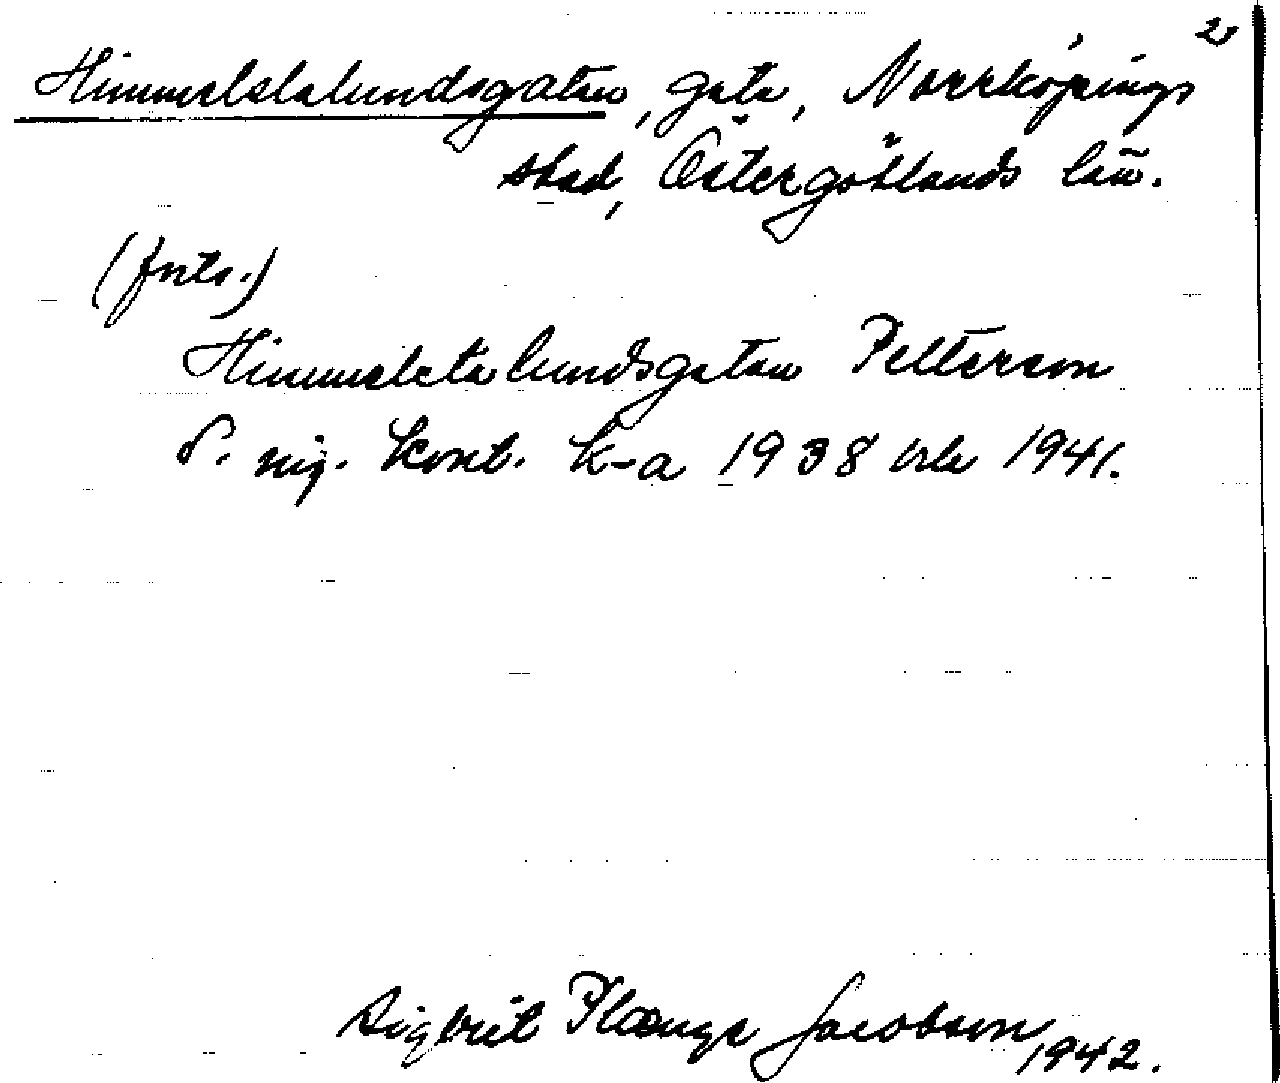 2
Himmelstalundsgatan, gata, Norrköpings
stad, Östergötlands län.
(fnts.)
Himmelstalundsgatan Petterson
P. mij. kont. k-a 1938 1941.
Sigbrit Plænge Jacobson, 1942.